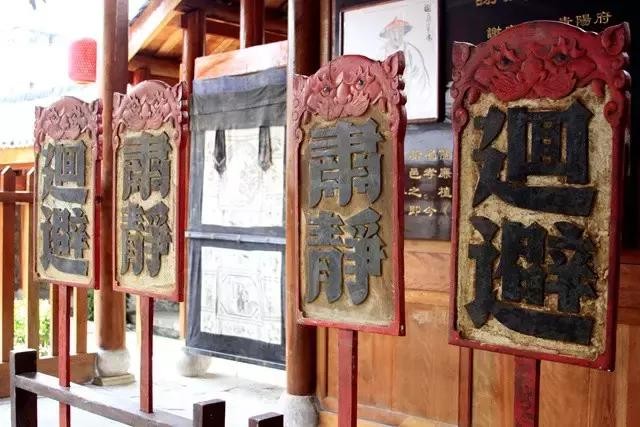 迴避
肅靜
肅靜
迴避
貴陽府